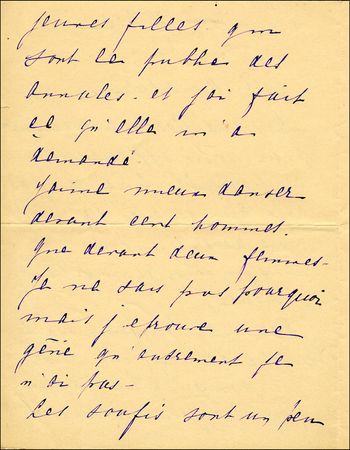 jeunes filles qui
sont le public des
annales. et j'ai fait
ce qu'elle m'a
demandé
j'aime mieux danser
devant cent hommes.
que devant deux femmes-
Je ne sais pas pourquoi
mais j'eprouve une
gêne qu'autrement je
n'ai pas-
Les soufis sont un peu